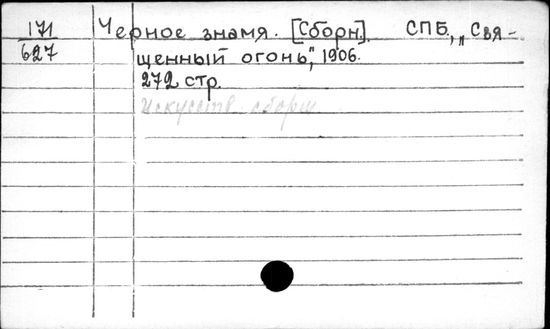 171
627
Черное знамя. [Сборн]. СПБ, "Свя-
щенный огонь", 1906.
272 стр.
Искусств. сборн